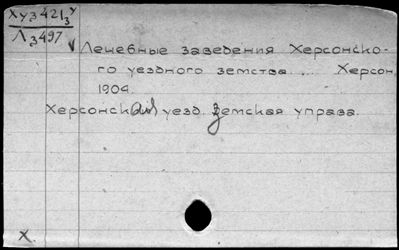 Хуз 421/3 у
Лз497
Лечебные заведения Херсонско-
го уездного земства ... Херсон,
1904.
Херсонская уезд. Земская управа.
X